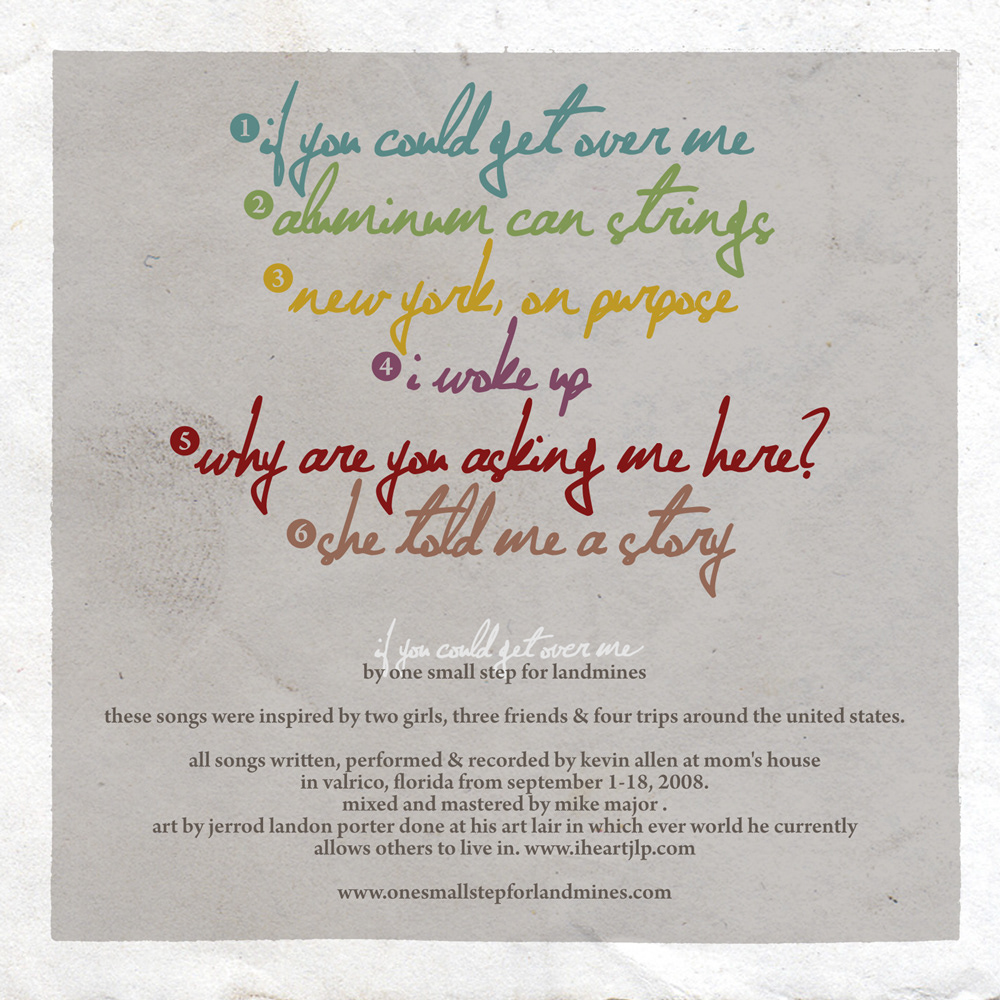 1 if you could get over me
2 aluminum can strings
3 new york, on purpose
4 i woke up
5 why are you asking me here?
6 she told me a story
if you could get over me
by one small step for landmines
these songs were inspired by two girls, three friends & four trips around the united states.
all songs written, performed & recorded by kevin allen at mom's house
in valrico, florida from september 1-18, 2008.
mixed and mastered by mike major .
art by jerrod landon porter done at his art lair in which ever world he currently
allows others to live in. www.iheartjlp.com
www.onesmallstepforlandmines.com